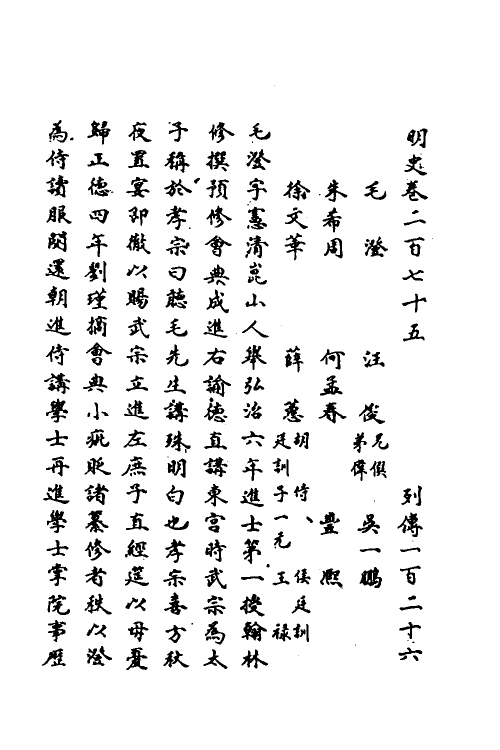 明史卷二百七十五　列傳一百二十六
毛澄　汪俊 兄儇 弟偉　吳一鵬
朱希周　何孟春　豐熙
徐文華　薛蕙 胡侍 侯廷訓 廷訓子一元 王祿
毛澄字憲清崑山人舉弘治六年進士第一授翰林
修撰預修會典成進右諭徳直講東宮時武宗為太
子稱於孝宗曰聽毛先生講殊明白也孝宗喜方秋
夜置宴即徹以賜武宗立進左庶子直經筵以母憂
歸正徳四年劉瑾摘會典小疵貶諸纂修者秩以澄
為侍讀服闋還朝進侍講學士再進學士掌院事歴